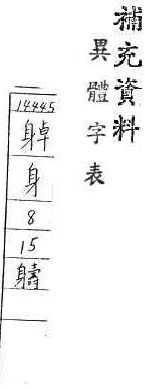 補充資料
異體字表
14445
䠷
身
8
15
軇